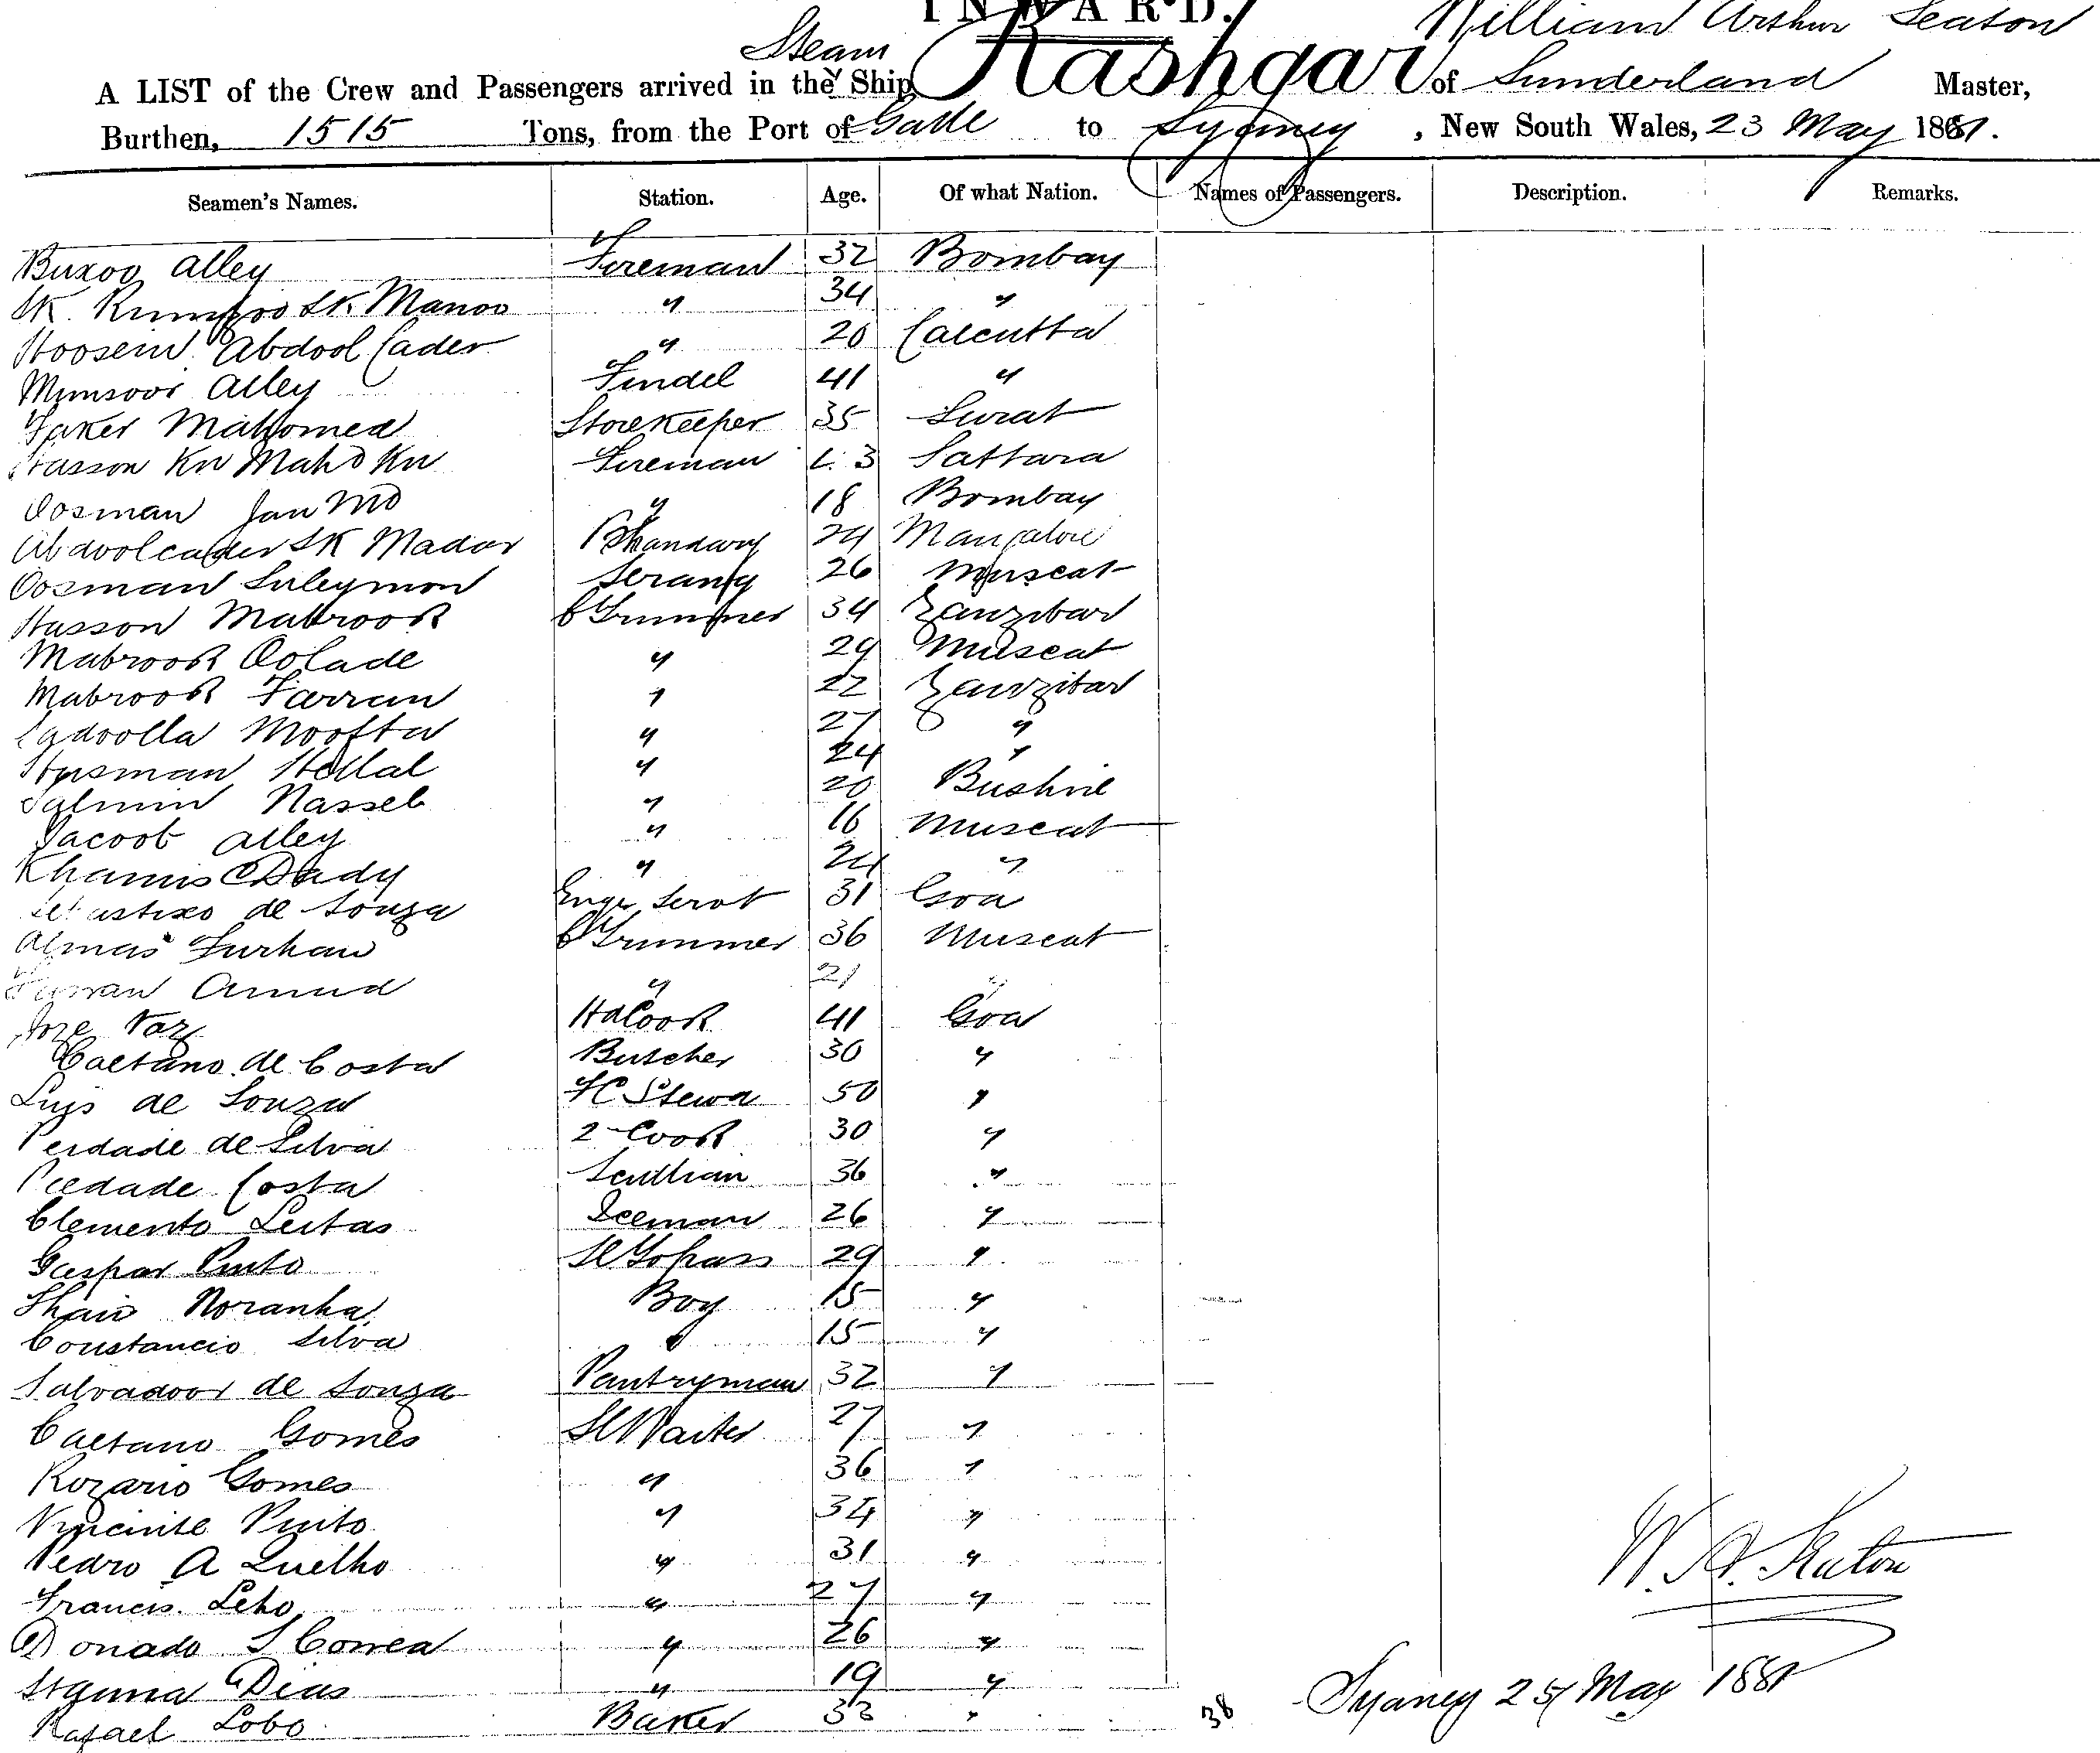 INWARD.
William Arthur Seaton
Steam
A LIST of the Crew and Passengers arrived in the Ship Kashgar of Sunderland Master,
Burthen, 1515 Tons, from the Port of Galle to Sydney, New South Wales, 23 May 1881.
Seamen's Names. Station. Age. Of what Nation. Names of Passengers. Description. Remarks.
Buxoo Alley Fireman 32 Bombay
SK. SK Manoo " 34 "
Hoosein Abdool Cader " 20 Calcutta
Munsoor Alley Tindel 41 "
Faker Mahomed Storekeeper 35 Surat
Hasson Kn Mahd Kn Fireman Sattara
Oosman Jan Md " 18 Bombay
Abdoolcader SK Madar Bhandary 24 Mangalore
Oosman Suleymon Serang 26 Muscat
Hasson Mabrook C Trimmer 34 Zanzibar
Mabrook Oolade " 29 Muscat
Mabrook Farran " 22 Zanzibar
Sadoolla Moofta " 27 "
Hellal " 24 "
Salmin Nasseb " 20 Bushire
Yacoob Alley " 16 Muscat
Khamis Dady " 24 "
de Souza Serot 31 Goa
Almas Furhan C Trimmer 36 Muscat
Farran Amud " 21 "
Joze Vaz Hd Cook 41 Goa
Caetano de Costa Butcher 30 "
Luis de Souza Stewd 50 "
de Silva 2 Cook 30 "
Piedade Costa Scullian 36 "
Clemento Leitao Iceman 26 "
Gaspar Pinto Sl Topass 29 "
Noranha Boy 15 "
Constancio Silva " 15 "
Salvadoor de Souza Pantryman 32 "
Caetano Gomes Sl Waiter 27 "
Rozario Gomes " 36 "
Vincinte Pinto " 34 "
Pedro A Luelho " 31 "
Francis. Lobo " 27 "
Donado S Correa " 26 "
Dias " 19 "
Rafael Lobo Baker 33 "
38
W. A. Seaton
Sydney 25 May 1881